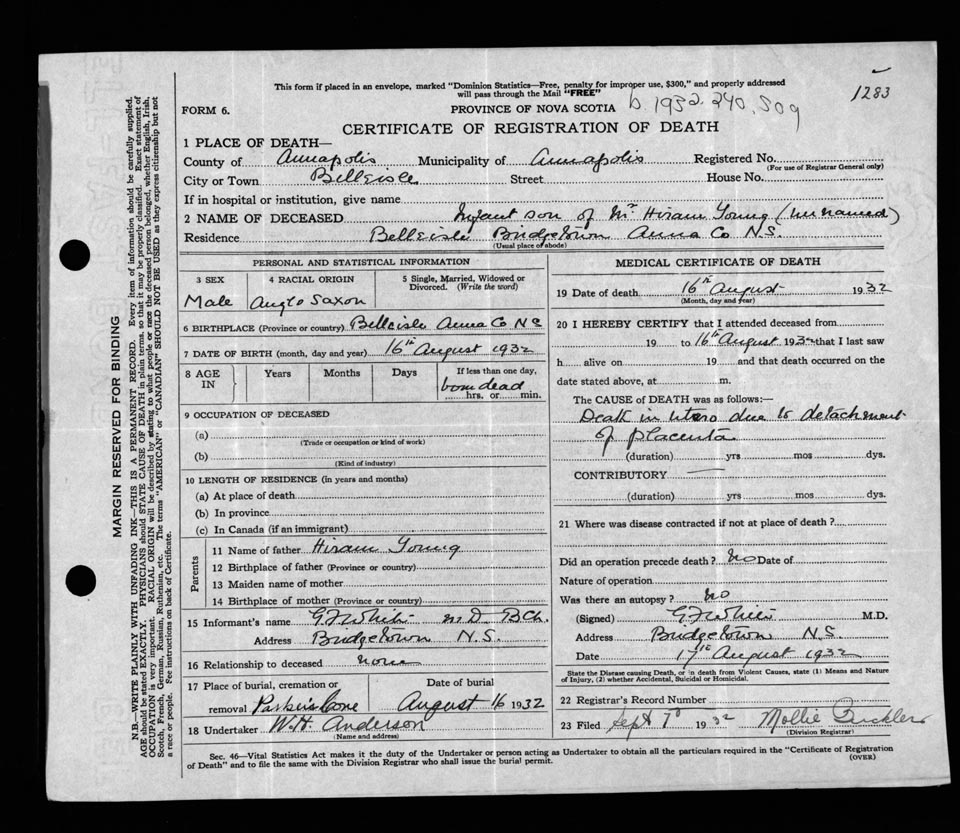 This form if placed in an envelope, marked "Dominion Statistics—Free, penalty for improper use, $300," and properly addressed
will pass through the Mail "FREE"
1283
FORM 6.
PROVINCE OF NOVA SCOTIA
b. 1932. 240, 509
CERTIFICATE OF REGISTRATION OF DEATH
1 PLACE OF DEATH—
County of Annapolis Municipality of Annapolis Registered No.
(For use of Registrar General only)
City or Town Belleisle Street House No.
If in hospital or institution, give name
2 NAME OF DECEASED Infant son of Mr Hiram Young (unnamed)
Residence Belleisle Bridgetown Anna Co N.S.
(Usual place of abode)
PERSONAL AND STATISTICAL INFORMATION
3 SEX 4 RACIAL ORIGIN 5 Single, Married, Widowed or
Divorced. (Write the word)
Male Anglo Saxon
6 BIRTHPLACE (Province or country) Belleisle Anna Co N S
7 DATE OF BIRTH (month, day and year) 16th August 1932
8 AGE IN Years Months Days If less than one day,
born dead
hrs. or min.
9 OCCUPATION OF DECEASED
(a)
(Trade or occupation or kind of work)
(b)
(Kind of industry)
10 LENGTH OF RESIDENCE (in years and months)
(a) At place of death
(b) In province
(c) In Canada (if an immigrant)
Parents
11 Name of father Hiram Young
12 Birthplace of father (Province or country)
13 Maiden name of mother
14 Birthplace of mother (Province or country)
15 Informant's name G F White M.D. BCh.
Address Bridgetown N.S.
16 Relationship to deceased none
17 Place of burial, cremation or Date of burial
removal Parkers Cove August 16 1932
18 Undertaker W.H. Anderson
(Name and address)
MEDICAL CERTIFICATE OF DEATH
19 Date of death 16th August 1932
(Month, day and year)
20 I HEREBY CERTIFY that I attended deceased from
19 to 16th August 1932 that I last saw
h alive on 19 and that death occurred on the
date stated above, at m.
The CAUSE of DEATH was as follows:—
Death in utero due to detachment
of placenta
(duration) yrs mos dys.
CONTRIBUTORY —
(duration) yrs mos dys.
21 Where was disease contracted if not at place of death?
Did an operation precede death? No Date of
Nature of operation
Was there an autopsy? No
(Signed) G F White M.D.
Address Bridgetown N.S.
Date 17th August 1932
State the Disease causing Death, or in death from Violent Causes, state (1) Means and Nature
of Injury, (2) whether Accidental, Suicidal or Homicidal.
22 Registrar's Record Number
23 Filed Sept 7 1932 Mollie
(Division Registrar)
Sec. 46—Vital Statistics Act makes it the duty of the Undertaker or person acting as Undertaker to obtain all the particulars required in the "Certificate of Registration
of Death" and to file the same with the Division Registrar who shall issue the burial permit.
(OVER)
MARGIN RESERVED FOR BINDING
N.B.—WRITE PLAINLY WITH UNFADING INK—THIS IS A PERMANENT RECORD. Every item of information should be carefully supplied.
AGE should be stated EXACTLY. PHYSICIANS should STATE CAUSE OF DEATH in plain terms, so that it may be properly classified. Exact statement of
OCCUPATION is very important. RACIAL ORIGIN will be described by stating to what people or race the deceased person belonged, whether English, Irish,
Scotch, French, German, Russian, Ruthenian, etc. The terms "AMERICAN" or "CANADIAN" SHOULD NOT BE USED as they express citizenship but not
a race or people. See instructions on back of Certificate.